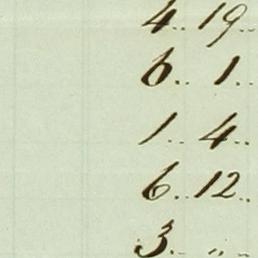 4.. 19..
6.. 1..
1.. 4..
6.. 12..
3.. ,, ..